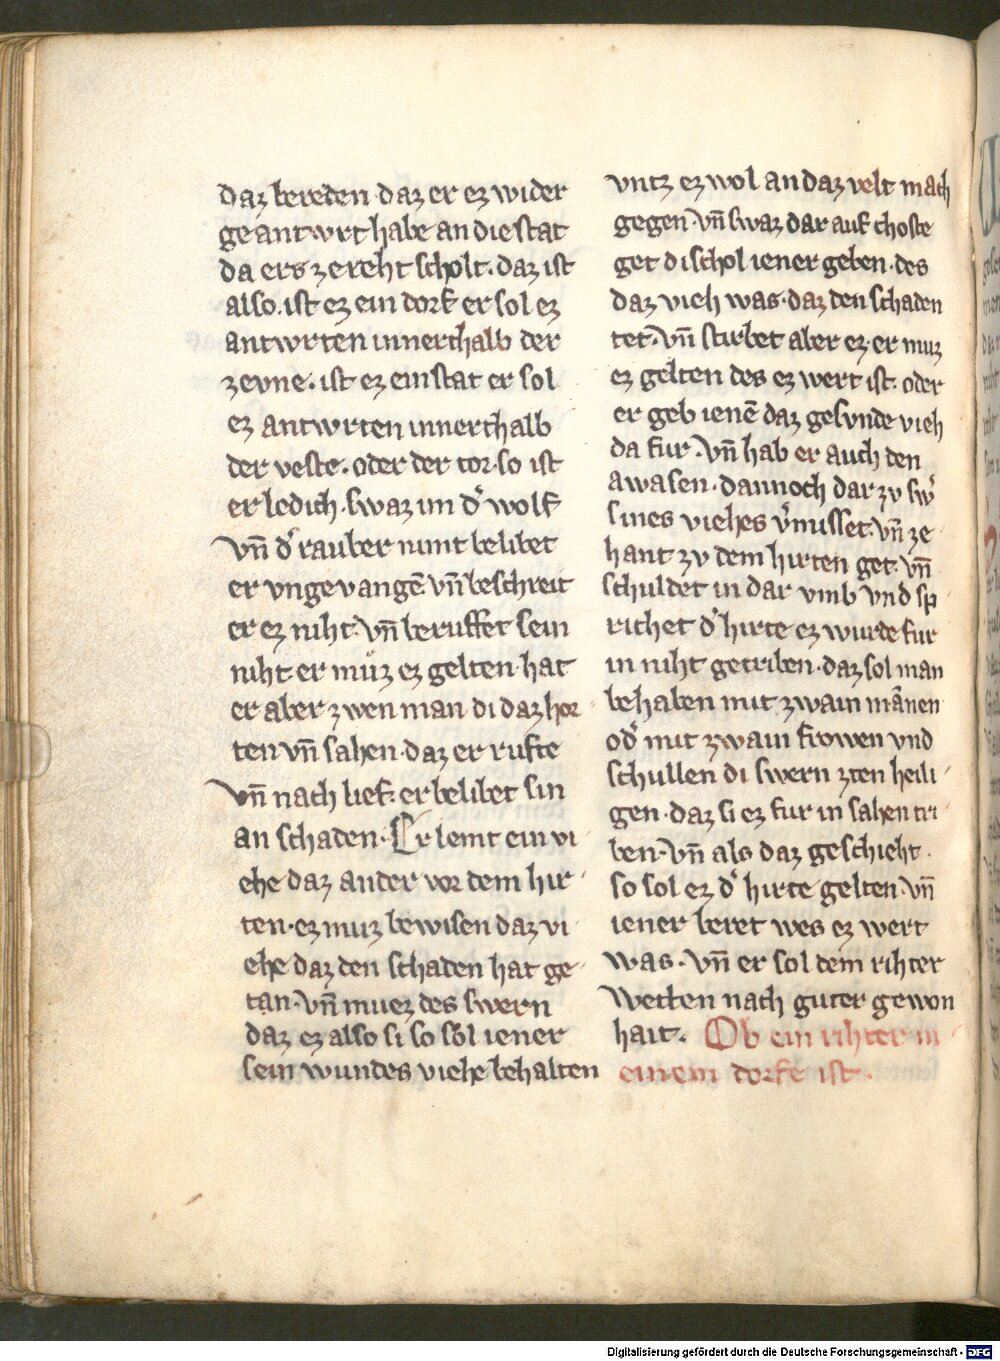 daz bereden · daz er ez wider
geantwrt habe an die stat
da ers zereht scholt · daz ist
also · ist ez ein dorf er sol ez
antwrten innerthalb der
zevne · ist ez ein stat er sol
ez antwrten innerthalb
der veste · oder der tor · so ist
er ledich · swaz im dͤ wolf
vn̄ dͤ rauber nimt belibet
er vngevangē vn̄ beschreit
er ez niht · vn̄ beruffet sein
niht er muͤz ez gelten · hat
er aber zwen man di daz hor
ten vn̄ sahen · daz er rufte
vn̄ nach lief · er belibet sin
an schaden · Er lemt ein vi
ehe daz ander vor dem hir
ten · ez muz bewisen daz vi
ehe daz den schaden hat ge
tan · vn̄ muez des swern
daz ez also si so sol iener
sein wundes viehe behalten
vntz ez wol an daz velt mach
gegen · vn̄ swaz dar auf choste
get di schol iener geben · des
daz vieh was · daz den schaden
tet · vn̄ stirbet aber ez · er muz
ez gelten des ez wert ist · oder
er geb ienē daz gesvnde vieh
da fur · vn̄ hab er auch den
awasen · dannoch dar zv swͤ
sines viehes vͤmisset · vn̄ ze
hant zv dem hirten get · vn̄
schuldet in dar vmb vnd sp
richet dͤ hirte ez wurde fur
in niht getriben · daz sol man
behaben mit zwain mānen
odͤ mit zwain frowen vnd
schullen di swern zten heili
gen · daz si ez fur in sahen tri
ben · vn̄ als daz geschieht ·
so sol ez dͤ hirte gelten · vn̄
iener beret wes ez wert
was · vn̄ er sol dem rihter
wetten nach guter gewon
hait · Ob ein rihter in
einem dorfe ist ·
Digitalisierung gefördert durch die Deutsche Forschungsgemeinschaft - DFG